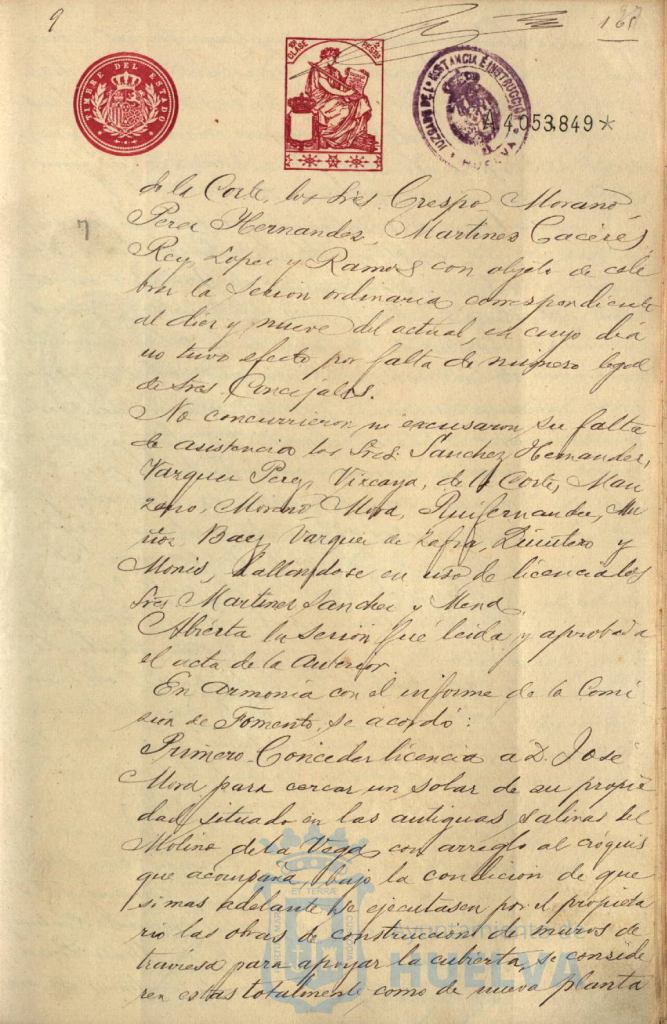 9
165
TIMBRE DEL ESTADO
CLASE
JUZGADO DE 1ª INSTANCIA E INSTRUCCION
HUELVA
4.053.849*
de la Corte, los Sres. Crespo Morano
Perez Hernandez, Martinez Caceres,
Rey Lopez y Ramos con objeto de cele
brar la sesion ordinaria correspondiente
al diez y nueve del actual, en cuyo dia
no tuvo efecto por falta de número legal
de Sres. Concejales.
No concurrieron ni excusaron su falta
de asistencia los Sres. Sanchez Hernandez,
Vazquez Perez, Vizcaya, de la Corte, Man
zano, Morano Mora, Ruifernandez, Mu
ñoz, Baez, Vazquez de Zafra, Quintero y
Monis, hallandose en uso de licencia los
Sres Martinez Sanchez y Mena.
Abierta la sesion fué leida y aprobada
el acta de la anterior.
En armonia con el informe de la Comi
sion de Fomento, se acordó:
Primero. Conceder licencia a D. José
Mora para cercar un solar de su propie
dad situado en las antiguas salinas del
Molino de la Vega, con arreglo al cróquis
que acompaña, bajo la condicion de que
si mas adelante se ejecutasen por el propieta
rio las obras de construccion de muros de
traviesa para apoyar la cubierta, se conside
ren estas totalmente como de nueva planta
HUELVA